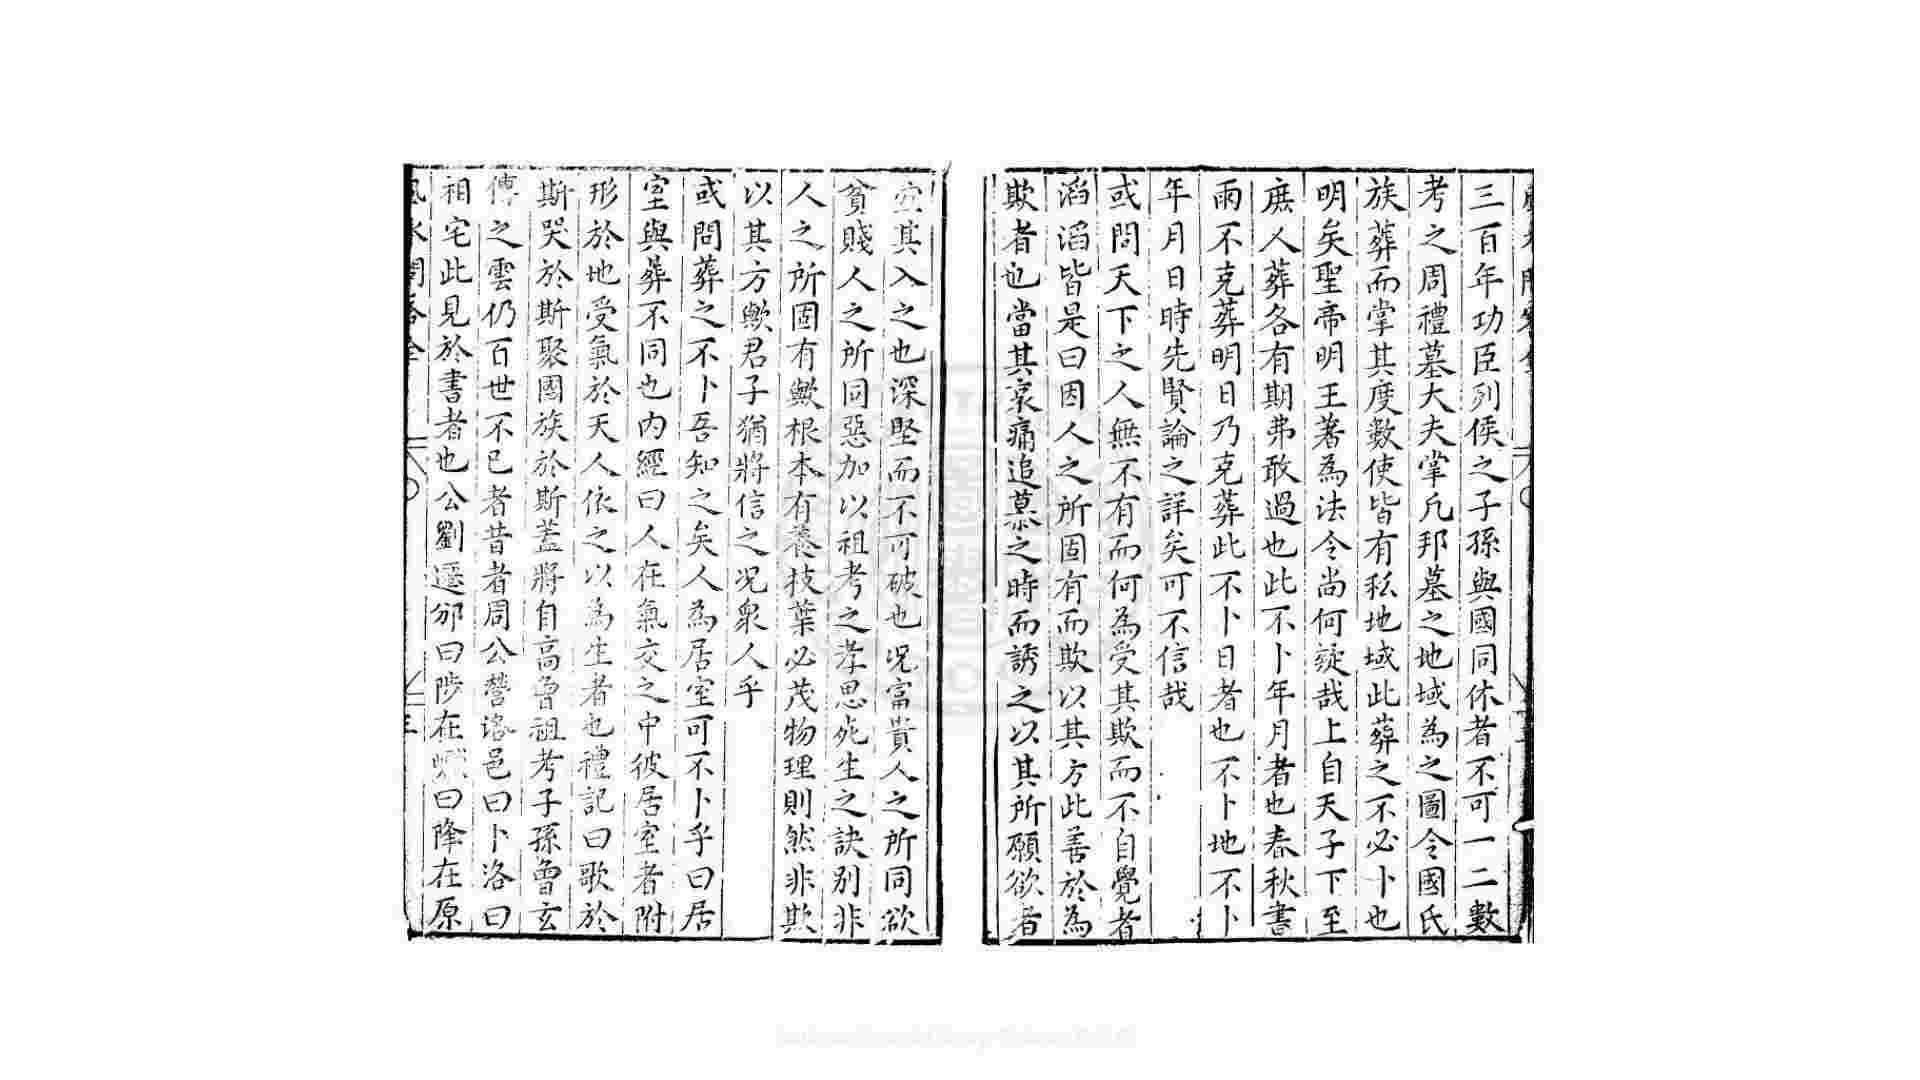 三百年功臣列侯之子孫與國同休者不可一二數
考之周禮墓大夫掌凡邦墓之地域為之圖令國民
族葬而掌其度數使皆有私地域此葬之不必卜也
明矣聖帝明王著為法令尚何疑哉上自天子下至
庶人葬各有期弗敢過也此不卜年月者也春秋書
雨不克葬明日乃克葬此不卜日者也不卜地不卜
年月日時先賢論之詳矣可不信哉
或問天下之人無不有而何為受其欺而不自覺者
滔滔皆是曰因人之所固有而欺以其方此善於為
欺者也當其哀痛追慕之時而誘之以其所願欲者
宜其入之也深堅而不可破也況富貴人之所同欲
貧賤人之所同惡加以祖考之孝思死生之訣別非
人之所固有歟根本有養枝葉必茂物理則然非欺
以其方歟君子猶將信之況衆人乎
或問葬之不卜吾知之矣人為居室可不卜乎曰居
室與葬不同也内經曰人在氣交之中彼居室者附
形於地受氣於天人依之以為生者也禮記曰歌於
斯哭於斯聚國族於斯蓋將自高曾祖考子孫曾玄
傳之雲仍百世不已者昔者周公營洛邑曰卜洛曰
相宅此見於書者也公劉遷邠曰陟在巘曰降在原
風水問答全